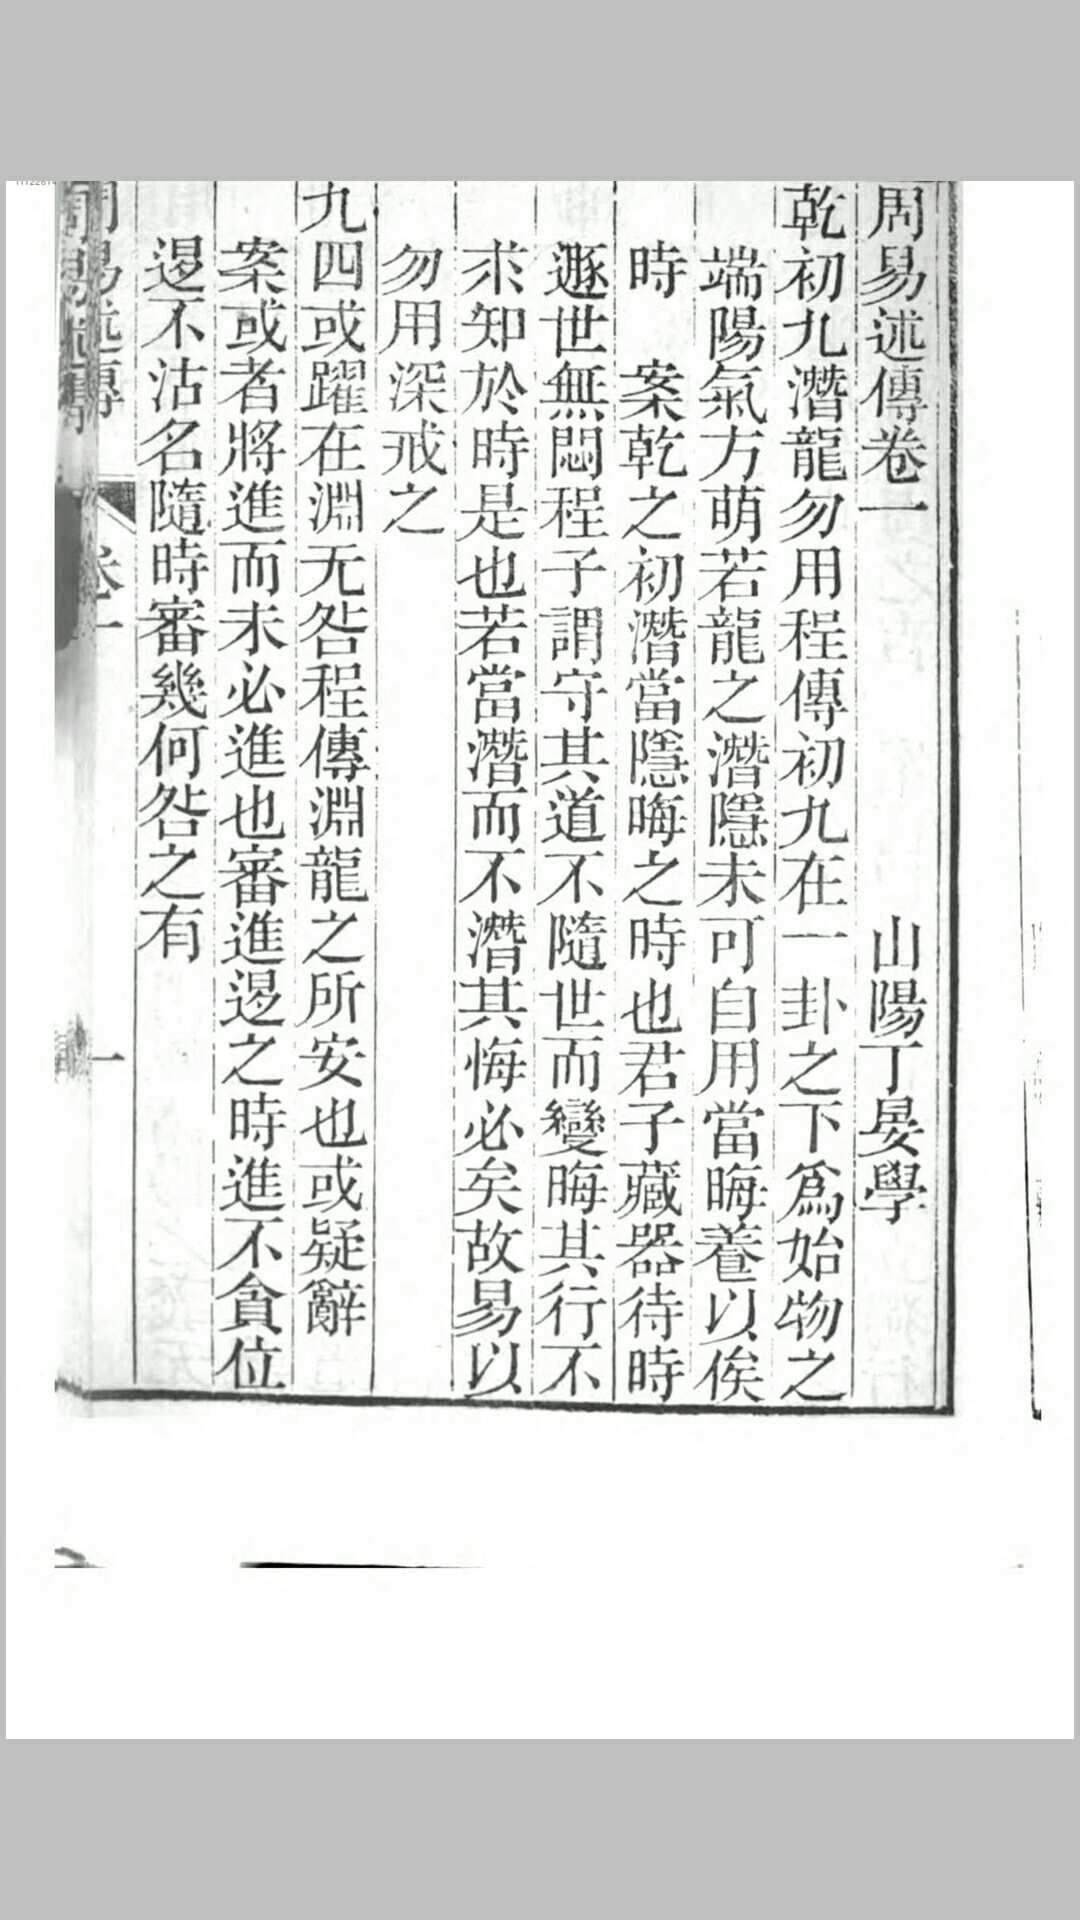 周易述傳卷一
山陽丁晏學
乾初九潛龍勿用程傳初九在一卦之下爲始物之
端陽氣方萌若龍之潛隱未可自用當晦養以俟
時　案乾之初潛當隱晦之時也君子藏器待時
遯世無悶程子謂守其道不隨世而變晦其行不
求知於時是也若當潛而不潛其悔必矣故易以
勿用深戒之
九四或躍在淵无咎程傳淵龍之所安也或疑辭
案或者將進而未必進也審進𨓤之時進不貪位
𨓤不沽名隨時審幾何咎之有
周易述傳
卷一
一